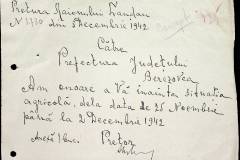 Pretura Raionului Landau
No 2770 din 5 Decembrie 1942
Către
Prefectura Județului
Berezovca
Am onoare a Vă înainta situația
agricolă, dela data de 25 Noembrie
până la 2 Decembrie 1942
Pretor